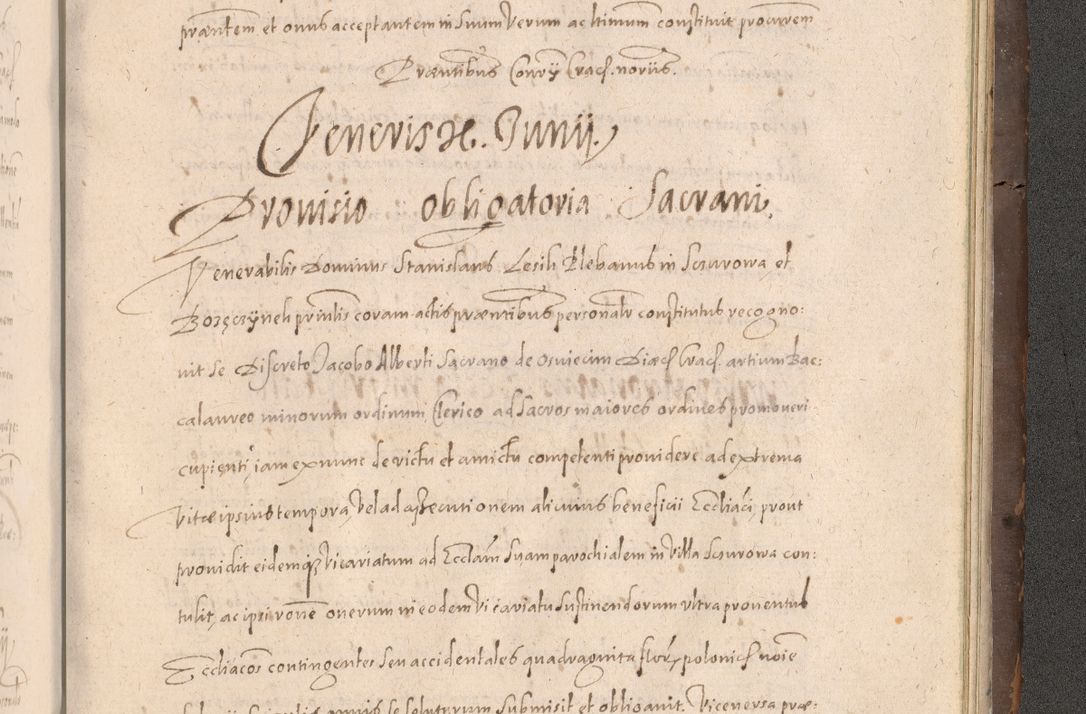 præsentem et onus acceptantem in Suum Verum ac ltimum constituit procurem
Præsentibus Conry Cracs. noriis.
Veneris 2e. Iunij.
Prouisio obligatoria Sacrani.
Venerabilis Dominus Stanislaus Lesih Plebanus in Sczurowa et
Borzęczÿneh prinlis coram actis præsentibus personalr constitutus recogno:
uit se Discreto Jacobo Alberti Sacrano de Osuiecim Diæcs Cracs. artium Bac:
calaureo minorum ordinum Clerico ad Sacros maiores ordines promoueri
cupienti, iam ex nunc de victu et amictu competenti prouidere ad extrema
Vitæ ipsius tempora, Vel ad assecutionem alicuius beneficii Eccliaci, prout
prouidit eidemq3 Vicariatum ad Ecclam Suam parochialem in Villa Sczurowa con:
tulit, ac ipsi ronē onerum in eodem Vicariatu Sustinendorum ultra prouentus
Eccliacos contingentes seu accidentales quadraginta flor. polonics noie
annis se soluturum Submisit et obligauit. Viceuersa præ: